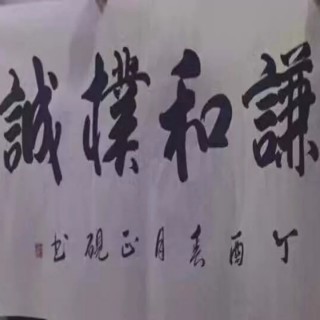 謙和樸誠
丁酉春月正硯书